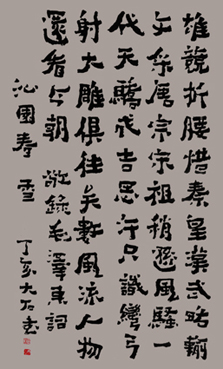 雄競折腰惜秦皇漢武略輸
文采唐宗宋祖稍遜風騷一
代天驕成吉思汗只識彎弓
射大雕俱往矣數風流人物
還看今朝 敬錄毛澤東詞
沁園春 雪 丁亥大石書